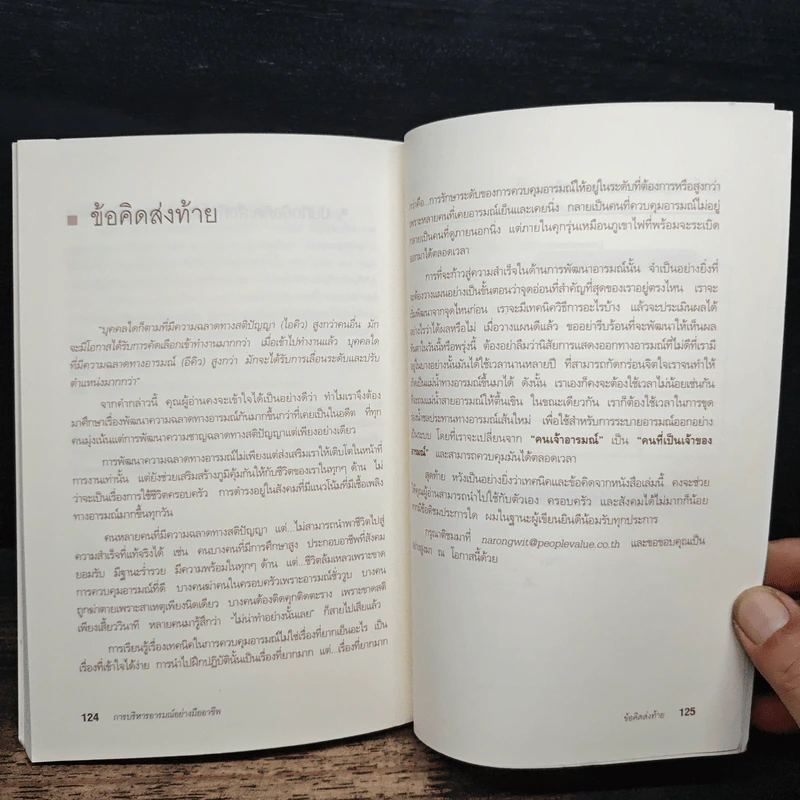 ข้อคิดส่งท้าย
"บุคคลใดก็ตามที่มีความฉลาดทางสติปัญญา (ไอคิว) สูงกว่าคนอื่น มัก
จะมีโอกาสได้รับการคัดเลือกเข้าทำงานมากกว่า เมื่อเข้าไปทำงานแล้ว บุคคลใด
ที่มีความฉลาดทางอารมณ์ (อีคิว) สูงกว่า มักจะได้รับการเลื่อนระดับและปรับ
ตำแหน่งมากกว่า"
จากคำกล่าวนี้ คุณผู้อ่านคงจะเข้าใจได้เป็นอย่างดีว่า ทำไมเราจึงต้อง
มาศึกษาเรื่องพัฒนาความฉลาดทางอารมณ์กันมากขึ้นกว่าที่เคยเป็นในอดีต ที่ทุก
คนมุ่งเน้นแต่การพัฒนาความชาญฉลาดทางสติปัญญาแต่เพียงอย่างเดียว
การพัฒนาความฉลาดทางอารมณ์ไม่เพียงแต่ส่งเสริมเราให้เติบโตในหน้าที่
การงานเท่านั้น แต่ยังช่วยเสริมสร้างภูมิคุ้มกันให้กับชีวิตของเราในทุกๆ ด้าน ไม่
ว่าจะเป็นเรื่องการใช้ชีวิตครอบครัว การดำรงอยู่ในสังคมที่มีแนวโน้มที่มีเชื้อเพลิง
ทางอารมณ์มากขึ้นทุกวัน
คนหลายคนที่มีความฉลาดทางสติปัญญา แต่...ไม่สามารถนำพาชีวิตไปสู่
ความสำเร็จที่แท้จริงได้ เช่น คนบางคนที่มีการศึกษาสูง ประกอบอาชีพที่สังคม
ยอมรับ มีฐานะร่ำรวย มีความพร้อมในทุกๆ ด้าน แต่...ชีวิตล้มเหลวเพราะขาด
การควบคุมอารมณ์ที่ดี บางคนฆ่าคนในครอบครัวเพราะอารมณ์ชั่ววูบ บางคน
ถูกฆ่าตายเพราะสาเหตุเพียงนิดเดียว บางคนต้องติดคุกติดตะราง เพราะขาดสติ
เพียงเสี้ยววินาที หลายคนมารู้สึกว่า "ไม่น่าทำอย่างนั้นเลย" ก็สายไปเสียแล้ว
การเรียนรู้เรื่องเทคนิคในการควบคุมอารมณ์ไม่ใช่เรื่องที่ยากเย็นอะไร เป็น
เรื่องที่เข้าใจได้ง่าย การนำไปฝึกปฏิบัตินั้นเป็นเรื่องที่ยากมาก แต่...เรื่องที่ยากมาก
124 การบริหารอารมณ์อย่างมืออาชีพ
กว่าคือ...การรักษาระดับของการควบคุมอารมณ์ให้อยู่ในระดับที่ต้องการหรือสูงกว่า
เพราะหลายคนที่เคยอารมณ์เย็นและเคยนิ่ง กลายเป็นคนที่ควบคุมอารมณ์ไม่อยู่
กลายเป็นคนที่ดูภายนอกนิ่ง แต่ภายในคุกรุ่นเหมือนภูเขาไฟที่พร้อมจะระเบิด
ออกมาได้ตลอดเวลา
การที่จะก้าวสู่ความสำเร็จในด้านการพัฒนาอารมณ์นั้น จำเป็นอย่างยิ่งที่
จะต้องวางแผนอย่างเป็นขั้นตอนว่าจุดอ่อนที่สำคัญที่สุดของเราอยู่ตรงไหน เราจะ
เริ่มพัฒนาจากจุดไหนก่อน เราจะมีเทคนิควิธีการอะไรบ้าง แล้วจะประเมินผลได้
อย่างไรว่าได้ผลหรือไม่ เมื่อวางแผนดีแล้ว ขออย่ารีบร้อนที่จะพัฒนาให้เห็นผล
ทันตาในวันนี้หรือพรุ่งนี้ ต้องอย่าลืมว่านิสัยการแสดงออกทางอารมณ์ที่ไม่ดีที่เรามี
อยู่ในบางอย่างนั้นมันได้ใช้เวลานานหลายปี ที่สามารถกัดกร่อนจิตใจเราจนทำให้
เกิดเป็นแม่น้ำทางอารมณ์ขึ้นมาได้ ดังนั้น เราเองก็คงจะต้องใช้เวลาไม่น้อยเช่นกัน
ที่จะถมแม่น้ำอารมณ์ให้ตื้นเขิน ในขณะเดียวกัน เราก็ต้องใช้เวลาในการขุด
คลองน้ำชลประทานทางอารมณ์เส้นใหม่ เพื่อใช้สำหรับการระบายอารมณ์ออกอย่าง
เป็นระบบ โดยที่เราจะเปลี่ยนจาก "คนเจ้าอารมณ์" เป็น "คนที่เป็นเจ้าของ
อารมณ์" และสามารถควบคุมมันได้ตลอดเวลา
สุดท้าย หวังเป็นอย่างยิ่งว่าเทคนิคและข้อคิดจากหนังสือเล่มนี้ คงจะช่วย
ให้คุณผู้อ่านสามารถนำไปใช้กับตัวเอง ครอบครัว และสังคมได้ไม่มากก็น้อย
หากมีข้อติชมประการใด ผมในฐานะผู้เขียนยินดีน้อมรับทุกประการ
กรุณาติชมมาที่ narongwit@peoplevalue.co.th และขอขอบคุณเป็น
อย่างสูงมา ณ โอกาสนี้ด้วย
ข้อคิดส่งท้าย 125